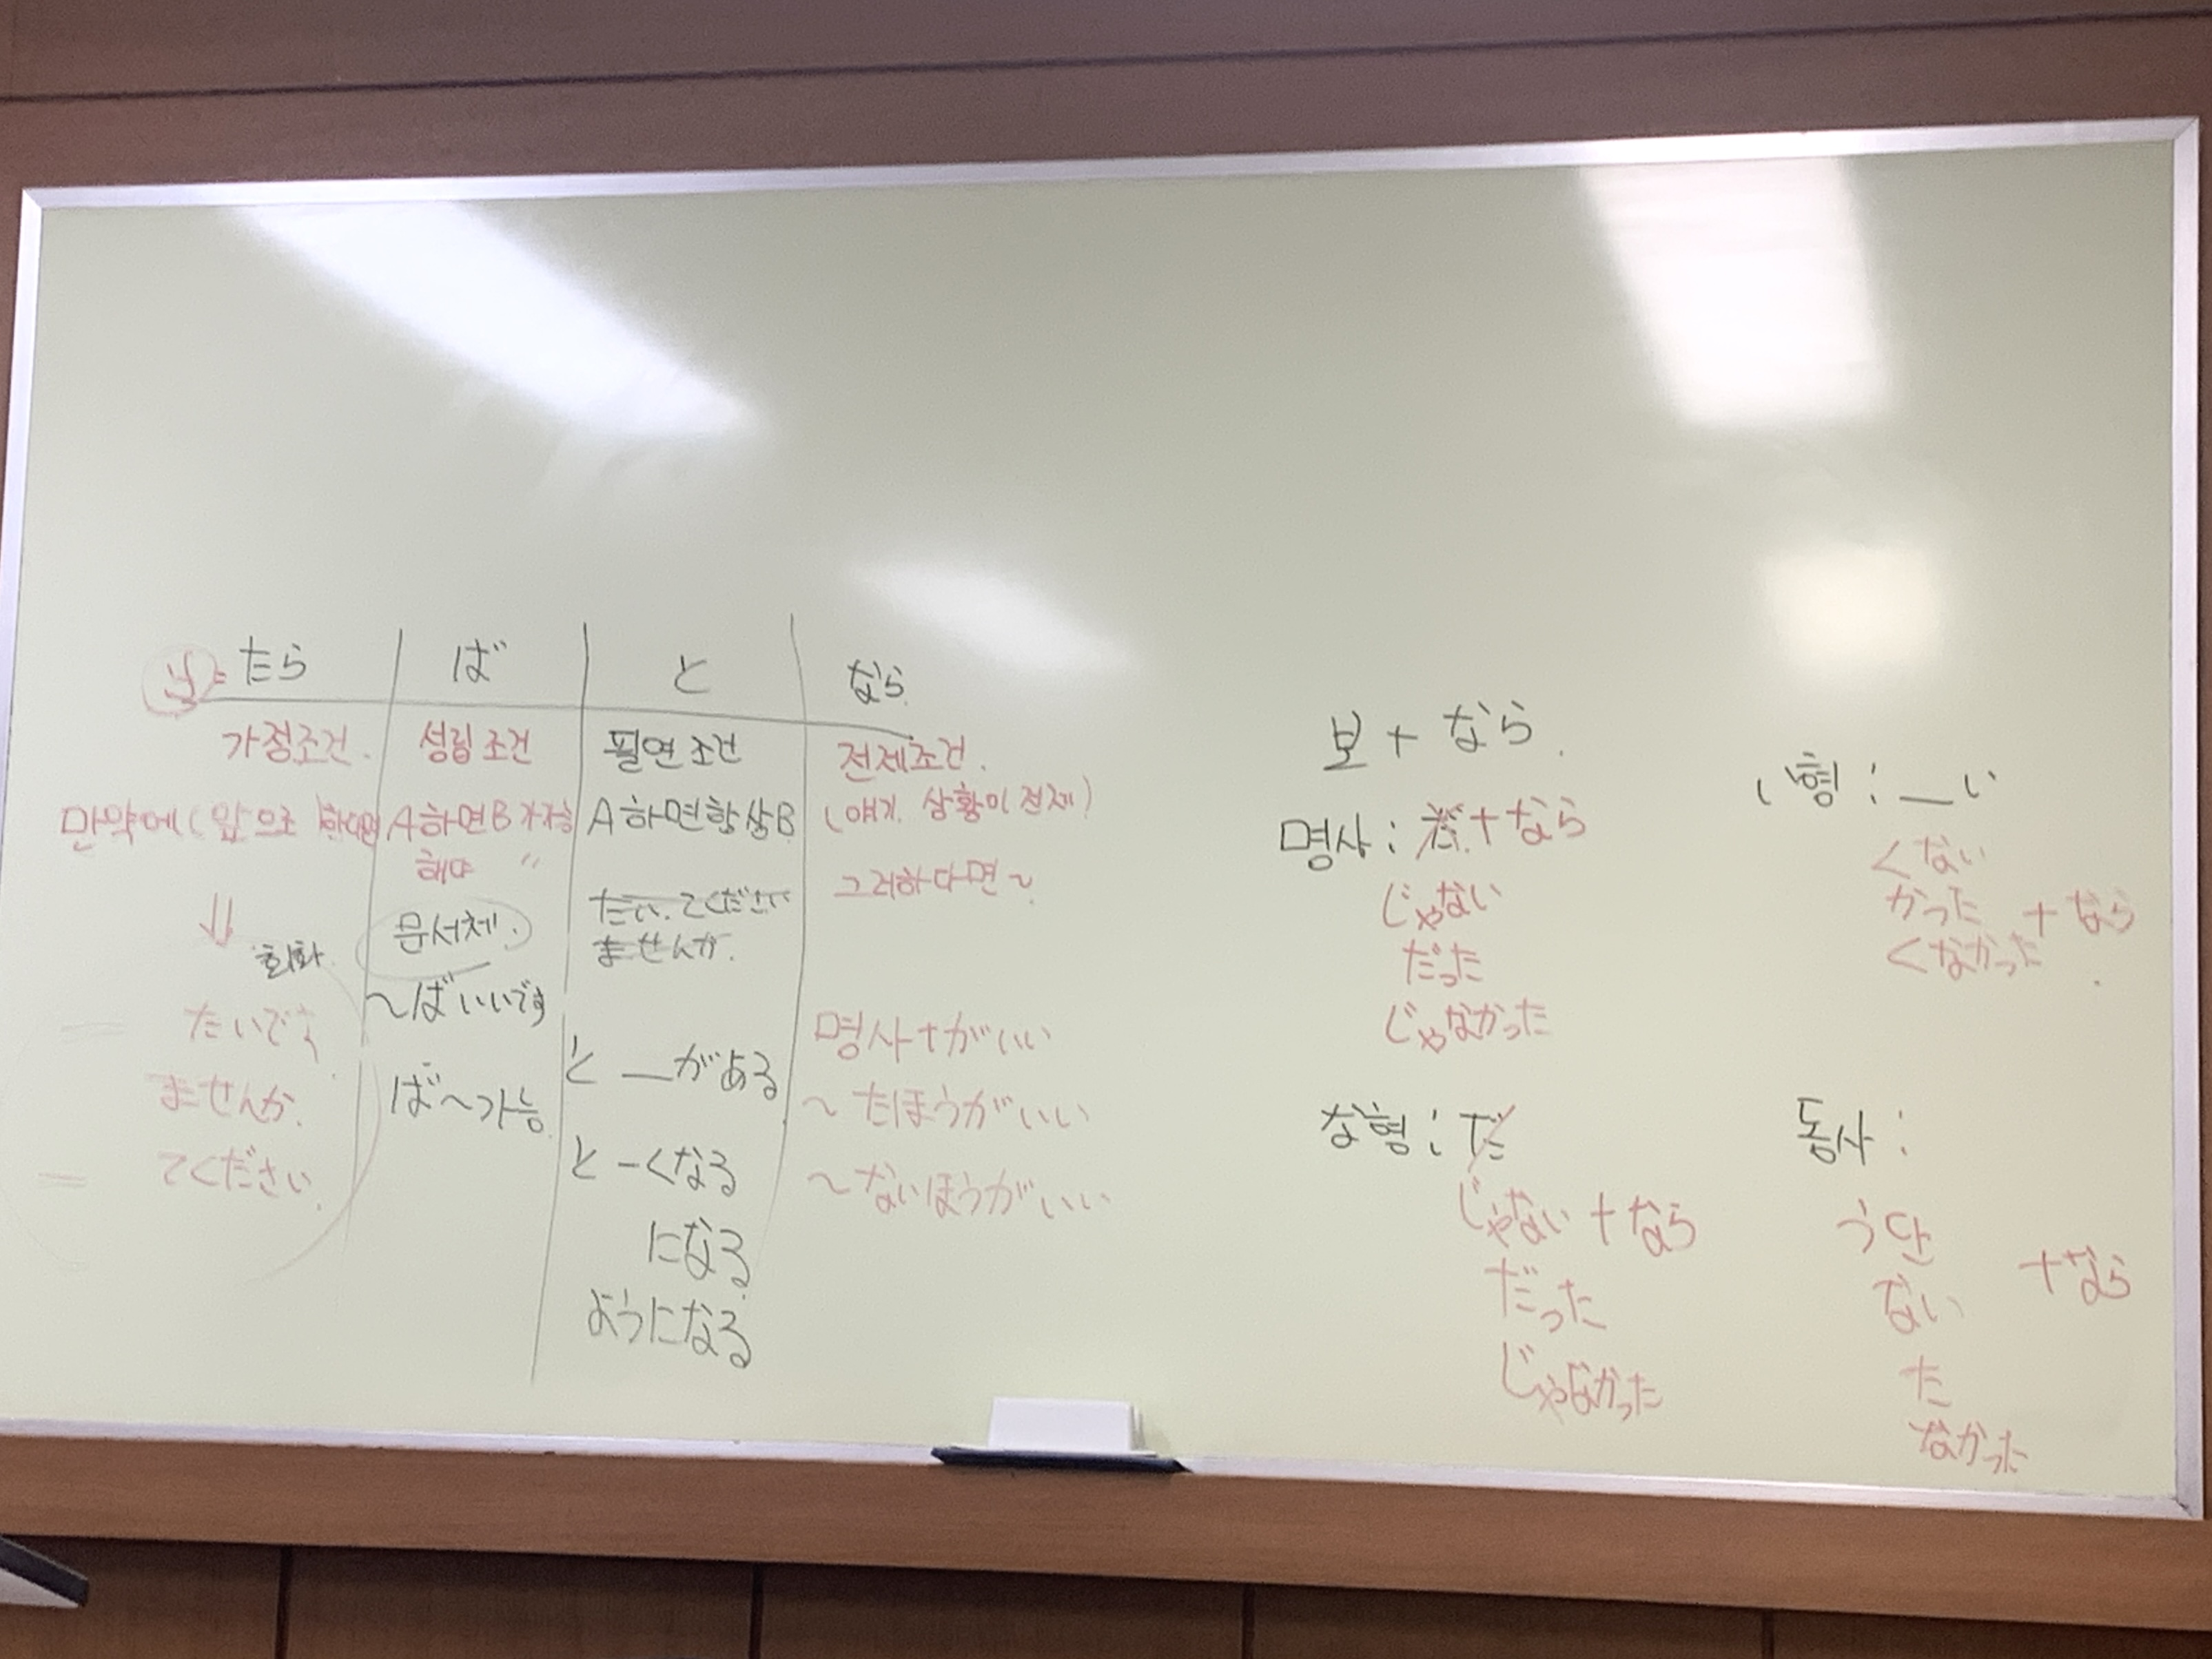 たら
ば
と
なら
가정조건.
성립조건
필연조건
전제조건.
만약에(앞으로
A하면B가능
A하면항상B
(얘기, 상황이 전제)
해야 〃
그러하다면~
⇓
회화.
문서체.
たい.てください
ませんか.
たいです
ませんか.
てください.
~ばいいです
ば~가능
と __がある
と ーくなる
になる
ようになる
명사+がいい
~たほうがいい
~ないほうがいい
보 + なら.
명사: +なら
じゃない
だった
じゃなかった
い형: __い
くない
かった +なら
くなかった
な형: だ
じゃない +なら
だった
じゃなかった
동사:
う단
ない +なら
た
なかった